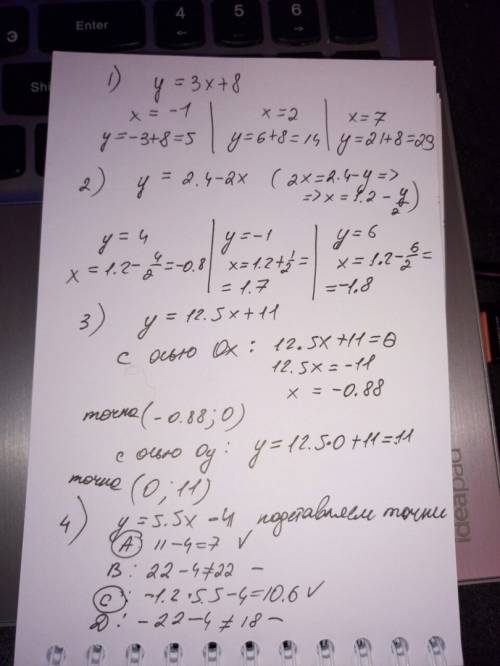 Enter
4
5
6
1) y = 3x+8
x = -1 | x = 2 | x = 7
y=-3+8=5 | y=6+8=14 | y=21+8=29
2) y = 2.4-2x (2x=2.4-y=>
=> x = 1.2 - y/2)
y = 4 | y = -1 | y = 6
x = 1.2-4/2=-0.8 | x=1.2+1/2= | x=1.2-6/2=
= 1.7 | =-1.8
3) y = 12.5x+11
с осью Ox: 12.5x+11=0
12.5x=-11
x = -0.88
точка (-0.88; 0)
с осью Oy: y=12.5·0+11=11
точка (0; 11)
4) y=5.5x-4 подставляем точки
A: 11-4=7 V
B: 22-4≠22 -
C: -1.2·5.5-4=10.6 V
D: -22-4≠18 -
ideapad